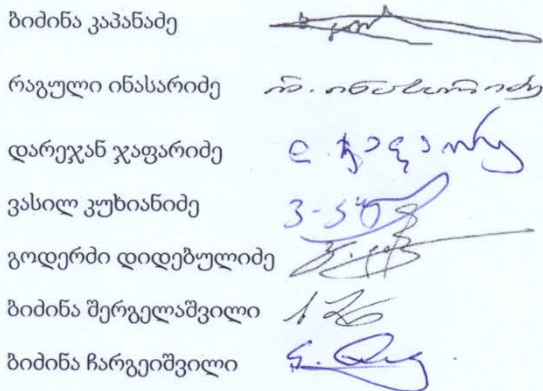 ბიძინა კაპანაძე
რაგული ინასარიძე რ. ინასარიძე
დარეჯან ჯაფარიძე
ვასილ კუხიანიძე
გოდერძი დიდებულიძე
ბიძინა შერგელაშვილი
ბიძინა ჩარგეიშვილი